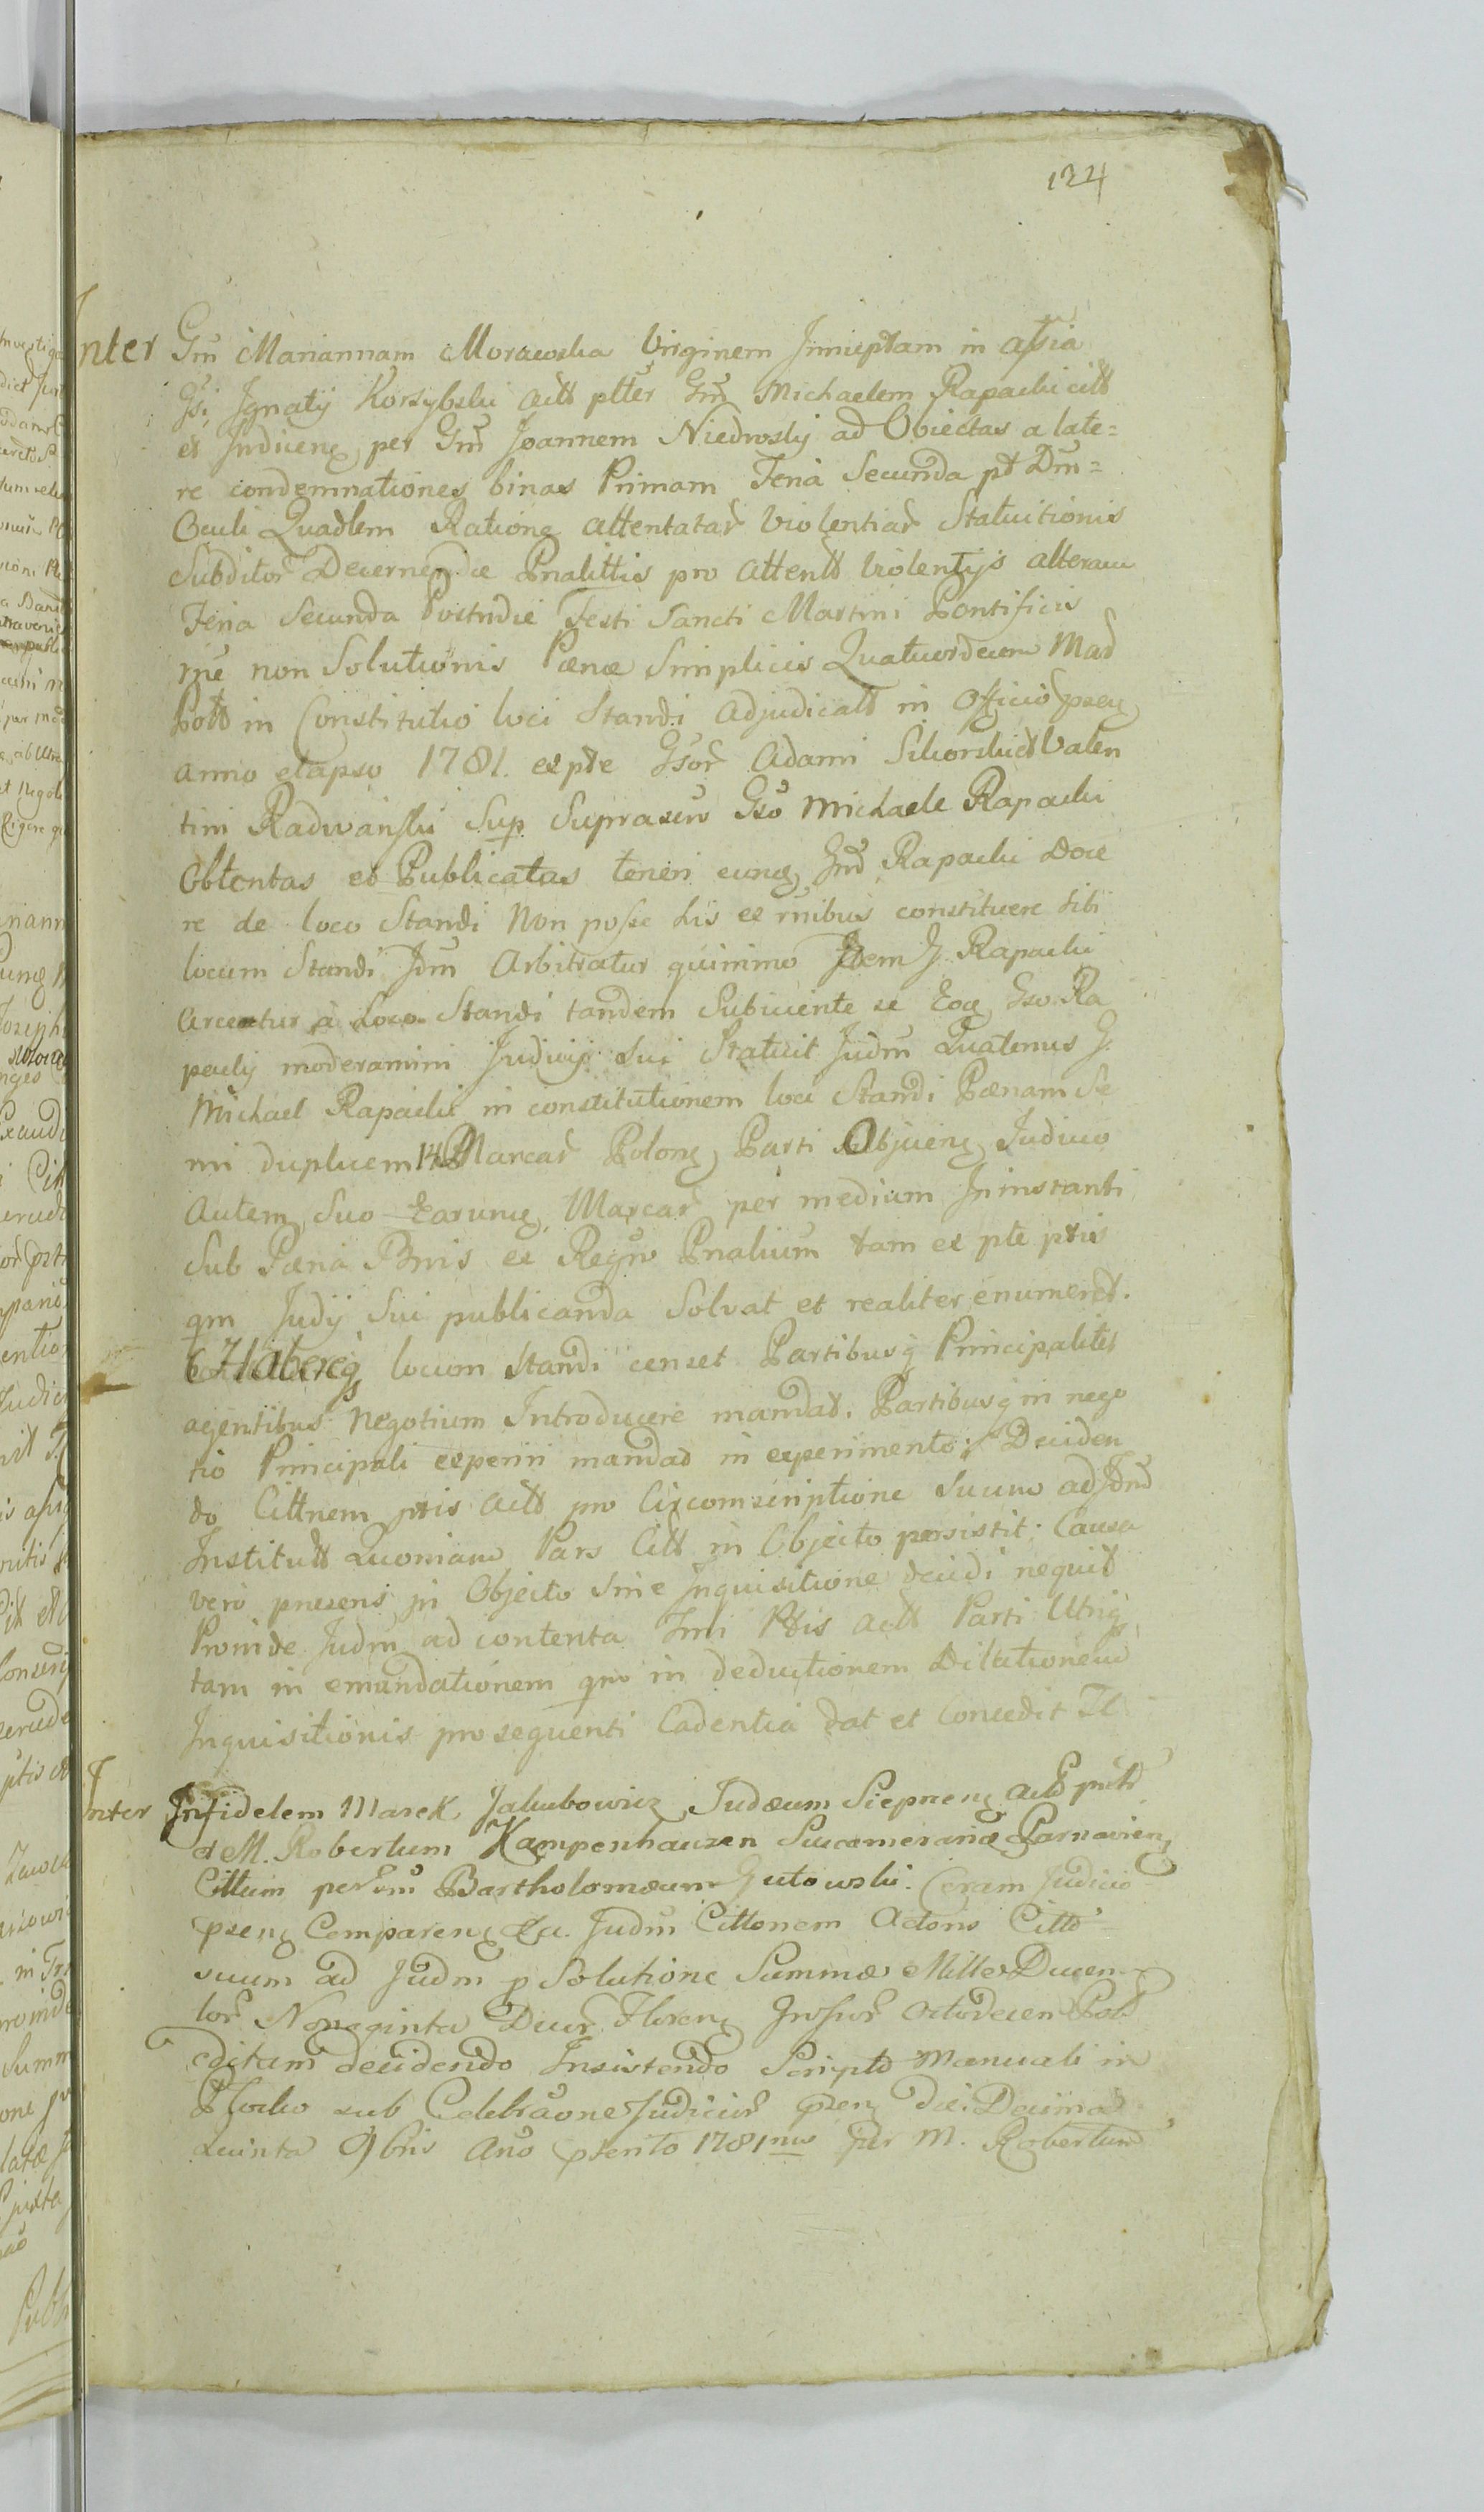 124
Inter Gsm Mariannam Morzewska Virginem Inniuptam in assia
Gsi Ignatij Korsybski actt ptter Gsm Michaelem Rapacki citt
et Inducenq per Gsm Joannem Niedwosky ad Obiectas a late=
re condemnationes binas Primam Feria Secunda pt Dm=
Oculi Quadlem Rationę attentatar Violentiar Statuitionis
Subditor Decernendæ Pnalittis pro attentt Violentijs alteram
Feria Secunda Postridie Festi Sancti Martini Pontificis
rne non Solutionis Pænæ Simplicis Quatuordecem Mar
Pott in Constitutio loci Standi Adjudicatt in Officio psenq
anno elapso 1781. ex pte Gsor Adami Sikorski et Valen
tini Radwański Sup Suprascrio Gso Michaele Rapacki
Obtentas et Publicatas teneri eunq Gnd Rapacki Doce
re de loco Standi Non posse his ex rnibus constituere sibi
locum Standi Jdm Arbitratur quinimo Idem G. Rapacki
Arceatur a Loco Standi tandem Subiicente se Eoq Gso Ra
packij moderamini Judicij sui Statuit Judm Quatenus G.
Michael Rapacki in constitutionem loci Standi Pænam Se
mi duplicem 14 Marcar Polonq Parti Objicienq Judicio
autem Suo Earunq Marcar per medium In instanti
Sub Pæna Bnis ex Regno Pnalium tam ex pte ptis
qm Judij Sui publicanda Solvat et realiter enumeret.
Et Habereq locum Standi censet Partibusq Principaliter
agentibus Negotium Introducere mandat. Partibusq in nego
tio Principali experiri mandat in experimento; Deciden
do Cittnem ptis actt pro Circomscriptione Sucum ad Jdm
Institutt Quoniam Pars Citt in Objecto persistit: Causa
vero presens in Objecto sine Inquisitione decidi nequit
Proinde Judm ad contenta Imi Ptis actt Parti Utriq
tam in emundationem qm in deductionem Dilationem
Inquisitionis pro sequenti Cadentia dat et Concedit Tl
Inter Infidelem Marek Jakubowicz Judæum Siepnenq actt pntr
et M. Robertum Kampenhauzen Succamerariæ Parnavienq
Cittum per Gsm Bartholomæum Gutowski. Coram Judicio
psenq Comparenq Ea. Judm Cittonem Actoris Citto
suum ad Judm p Solutione Summæ Mille Ducen-
tor Nonaginta Duor Florenq Grossor Octodecem Pol
editam decidendo Insistendo Scripto Manuali in
Płocko sub Celebraone Judicior psenq die Decima
Quinta 9bris Ano ptento 1781mo per M. Robertum